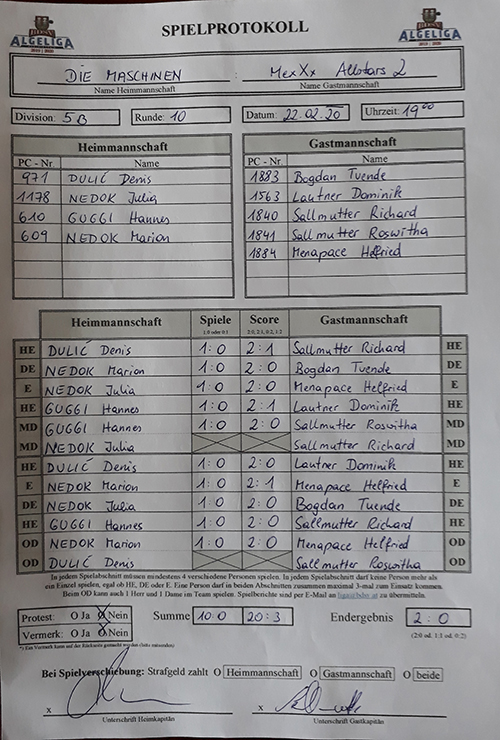 SPIELPROTOKOLL
ALGELIGA
ALGELIGA
DIE MASCHINEN : MexXx Allstars 2
Name Heimmannschaft Name Gastmannschaft
Division: 5B Runde: 10 Datum: 22.02.20 Uhrzeit: 19 00
Heimmannschaft Gastmannschaft
PC - Nr. Name PC - Nr. Name
971 DULIĆ Denis 1883 Bogdan Tuende
1178 NEDOK Julia 1563 Lautner Dominik
610 GUGGI Hannes 1840 Sallmutter Richard
609 NEDOK Marion 1841 Sallmutter Roswitha
1884 Menapace Helfried
Heimmannschaft Spiele Score Gastmannschaft
1:0 oder 0:1 2:0, 2:1, 0:2, 1:2
HE DULIĆ Denis 1:0 2:1 Sallmutter Richard HE
DE NEDOK Marion 1:0 2:0 Bogdan Tuende DE
E NEDOK Julia 1:0 2:0 Menapace Helfried E
HE GUGGI Hannes 1:0 2:1 Lautner Dominik HE
MD GUGGI Hannes 1:0 2:0 Sallmutter Roswitha MD
MD NEDOK Julia Sallmutter Richard MD
HE DULIĆ Denis 1:0 2:0 Lautner Dominik HE
E NEDOK Marion 1:0 2:1 Menapace Helfried E
DE NEDOK Julia 1:0 2:0 Bogdan Tuende DE
HE GUGGI Hannes 1:0 2:0 Sallmutter Richard HE
OD NEDOK Marion 1:0 2:0 Menapace Helfried OD
OD DULIĆ Denis Sallmutter Roswitha OD
In jedem Spielabschnitt müssen mindestens 4 verschiedene Personen spielen. In jedem Spielabschnitt darf keine Person mehr als
ein Einzel spielen, egal ob HE, DE oder E. Eine Person darf in beiden Abschnitten zusammen maximal 3-mal zum Einsatz kommen.
Beim OD kann auch 1 Herr und 1 Dame im Team spielen. Spielberichte sind per E-Mail an zu übermitteln.
Protest: O Ja O Nein Summe 10:0 20:3 Endergebnis 2:0
Vermerk: O Ja O Nein (2:0 od. 1:1 od. 0:2)
*) Ein Vermerk kann auf der Rückseite gemacht werden (bitte verwenden)
Bei Spielverschiebung: Strafgeld zahlt O Heimmannschaft O Gastmannschaft O beide
x x
Unterschrift Heimkapitän Unterschrift Gastkapitän